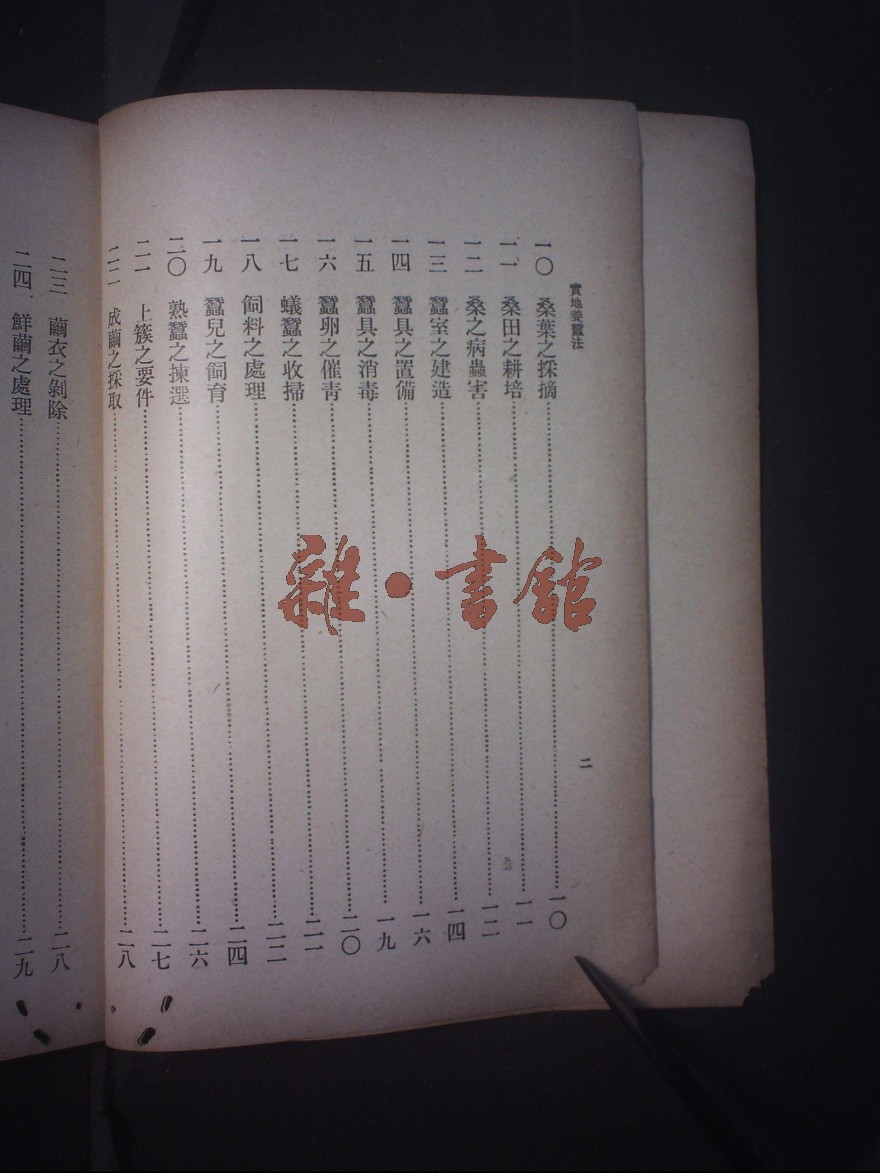 實地養蠶法
二
一〇 桑葉之採摘……一〇
一一 桑田之耕培……一一
一二 桑之病蟲害……一二
一三 蠶室之建造……一四
一四 蠶具之置備……一六
一五 蠶具之消毒……一九
一六 蠶卵之催青……二〇
一七 蟻蠶之收掃……二一
一八 飼料之處理……二二
一九 蠶兒之飼育……二四
二〇 熟蠶之揀選……二六
二一 上簇之要件……二七
二二 成繭之採取……二八
二三 繭衣之剝除……二八
二四 鮮繭之處理……二九
雜·書館